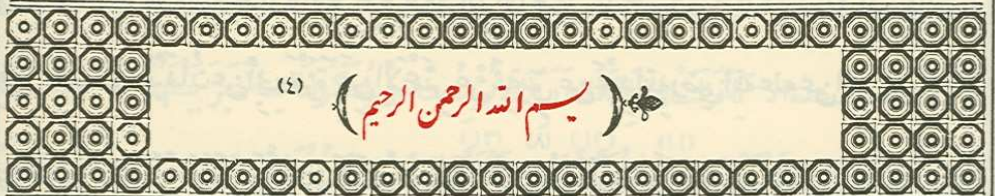 (بسم الله الرحمن الرحيم) (٤)